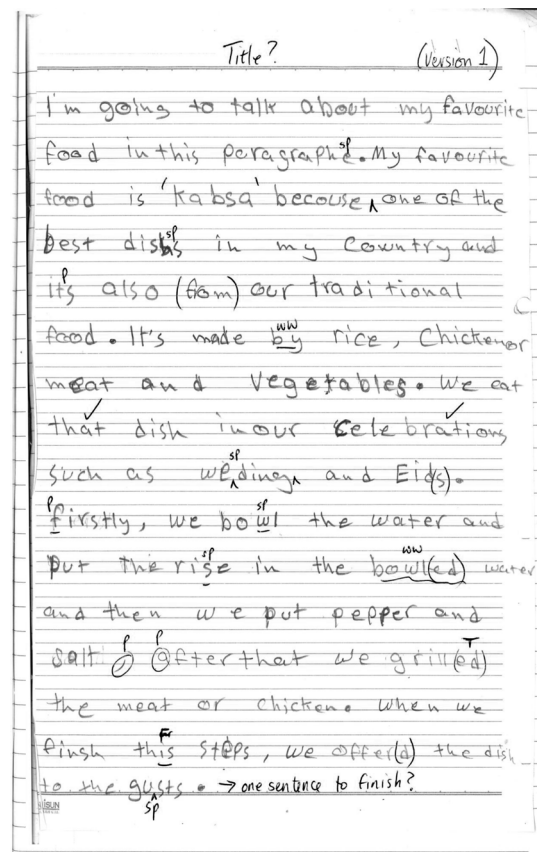 Title? (Version 1)
I'm going to talk about my favourite
sp
food in this peragraphe. My favourite
food is 'kabsa' becouse ^ one of the
sp
best dishs in my Cowntry and
p
it's also (from) our traditional
ww
food. It's made by rice, Chicken or
meat and vegetables. We eat
that dish in our celebrations
sp
such as wedding and Eid(s).
p sp
firstly, we bowl the water and
sp ww
put the rise in the bowl(ed) water
and then we put pepper and
p p T
salt, after that we grill(ed)
the meat or chicken. When we
finsh this steps, we offer(d) the dish
to the gusts. → one sentence to finish?
sp